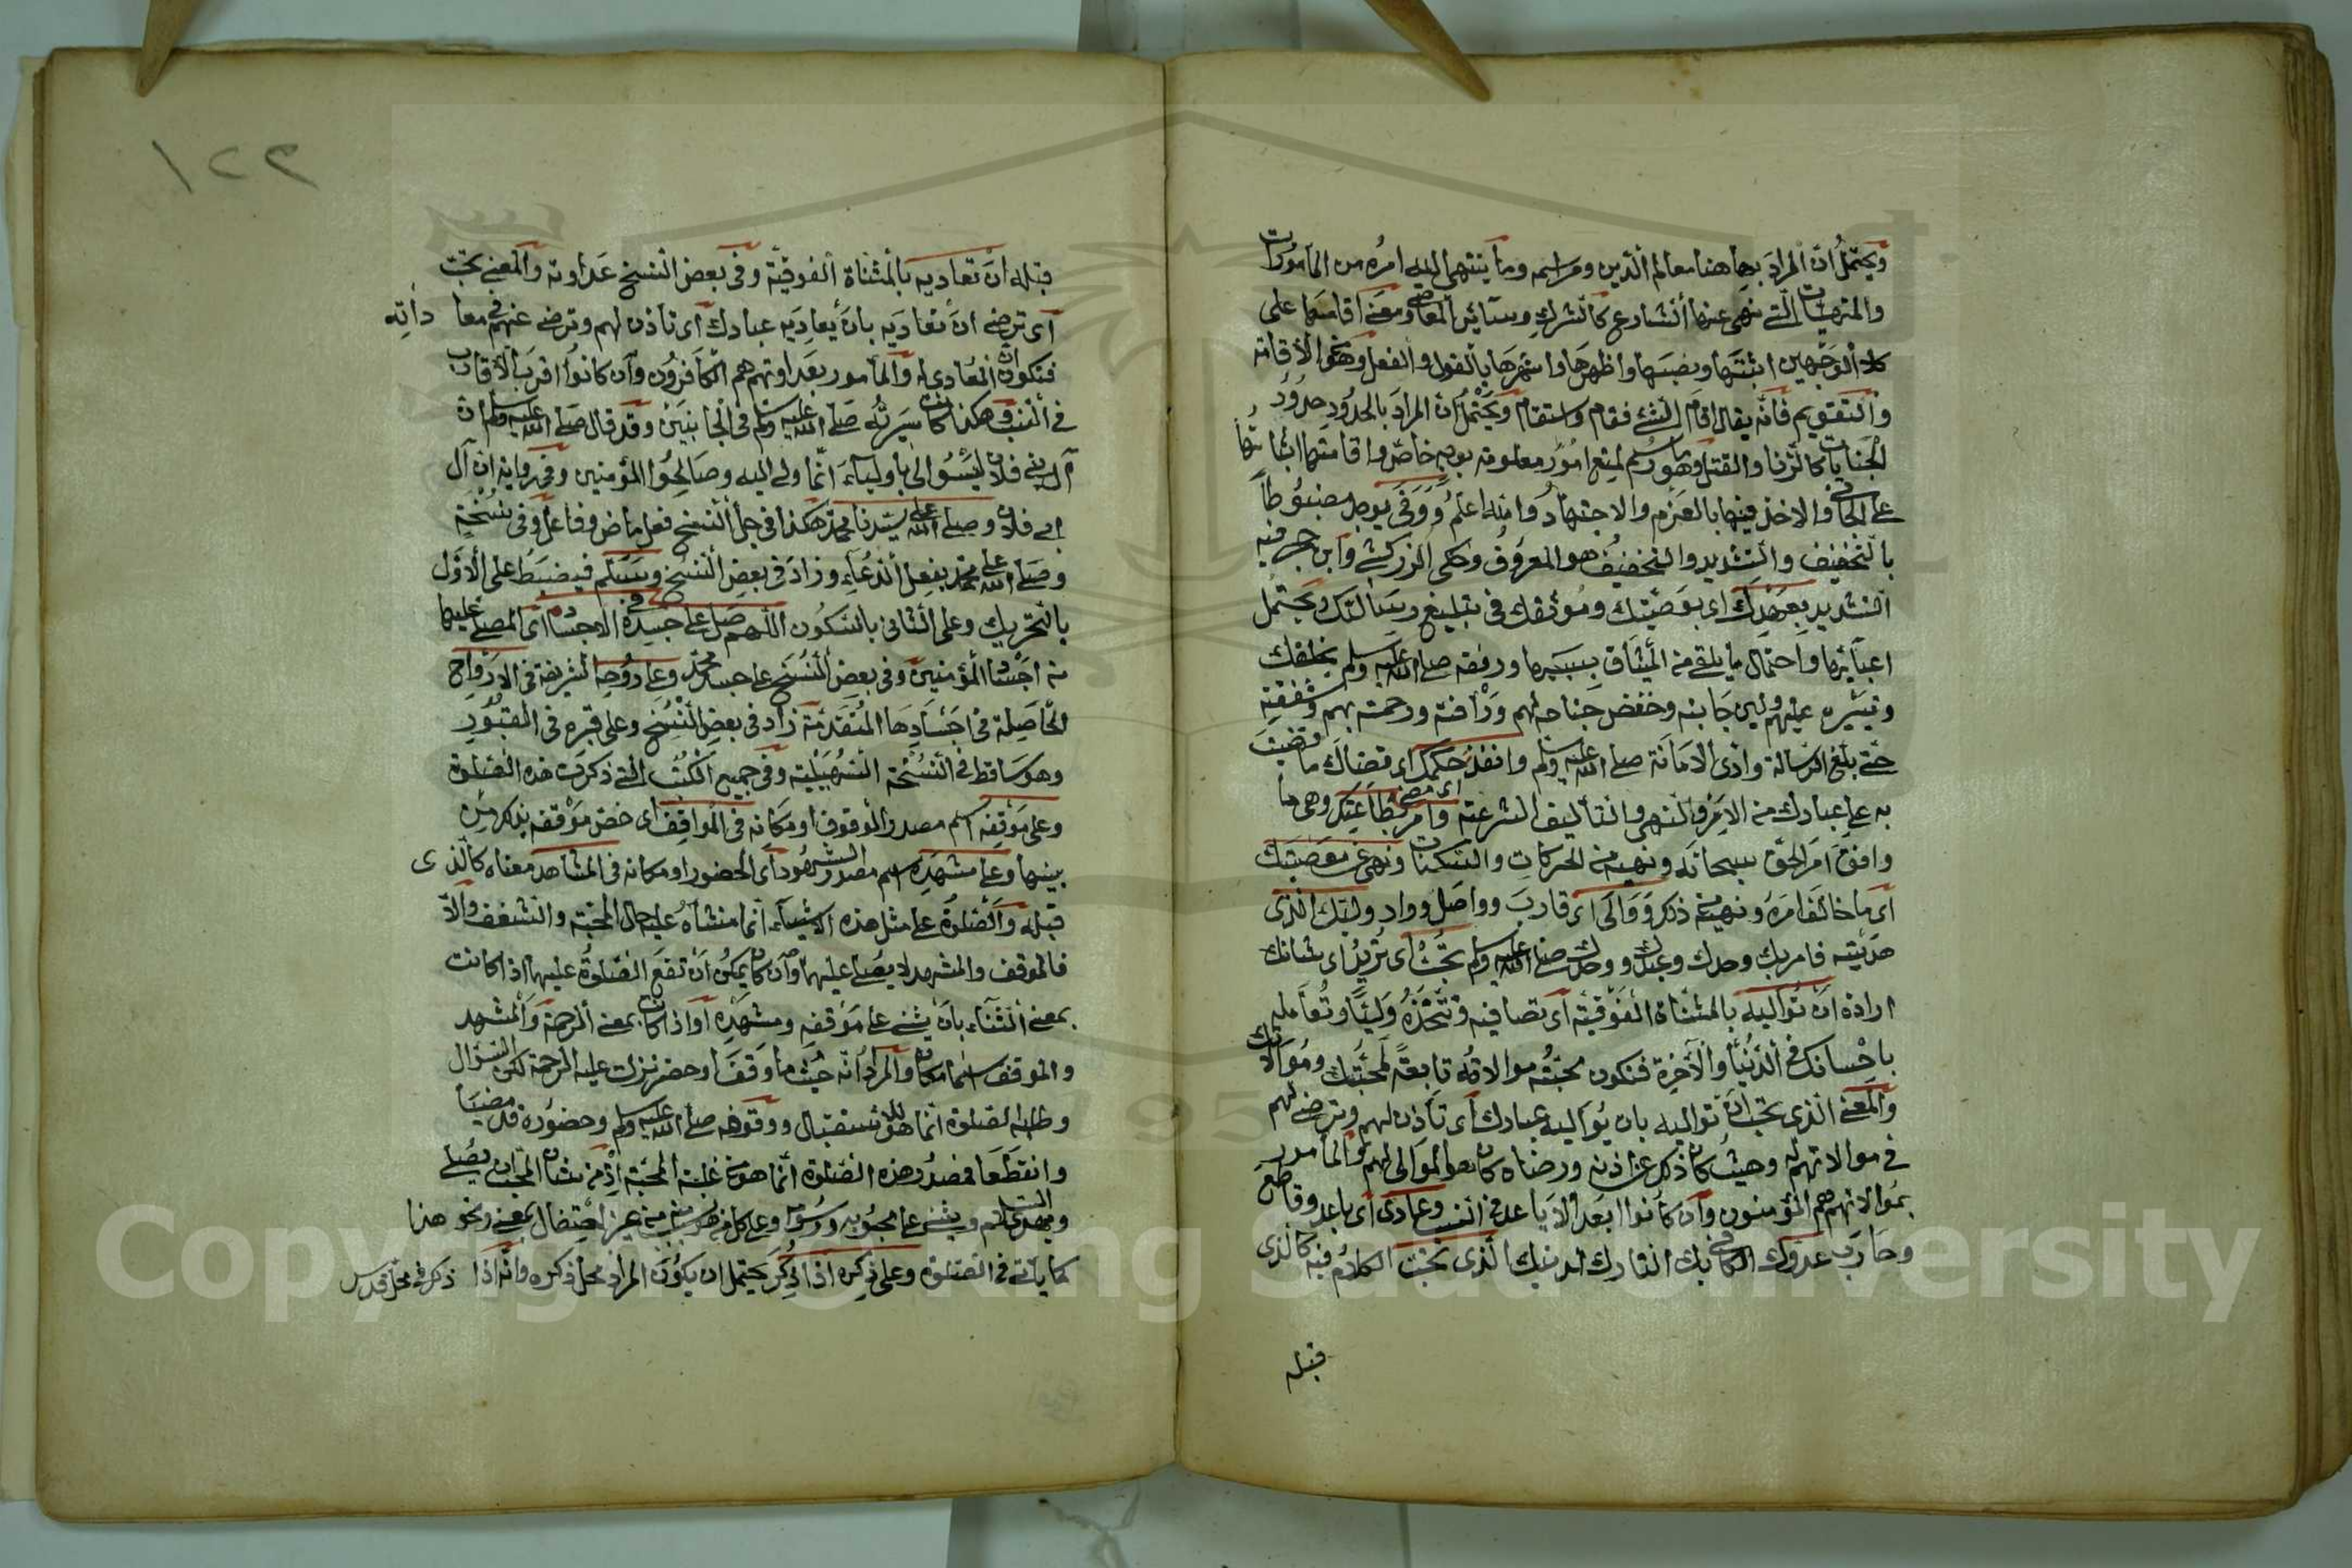 ويحتمل ان المراد بها هنا معالم الدين ومراسمه وما ينتهي اليه امره من المأمورات
والمنهيات التي نهى عنها الشارع كالشرك وسائر المعاصي ومعنى اقامتها على
كلا الوجهين اثبتها ونصبها واظهرها واشهرها بالقول والفعل ونحو الاقامة
والتقويم فانه يقال اقام الشئ فقام واستقام ويحتمل أن المراد بالحدود حدود
الجنايات كالزنا والقتل وهو رسم لمنع امور معلومة بوجه خاص واقامتها اثباتها
على الجاني والاخذ فيها بالعزم والاجتهاد والله اعلم ووفى يوجد مضبوطا
بالتخفيف والتشديد والتخفيف هو المعروف وحكى الزركشي وابن حجر فيه
التشديد بعهدك اي بوصيتك وموثقك في تبليغ رسالتك وتحتمل
اعبائها واحتمال ما يلقى من المشاق بسببها ورفقه صلى الله عليه وسلم بخلقك
وتيسره عليهم ولين جانبه وخفض جناحه لهم ورأفته ورحمته بهم وشفقته
حتى بلغ الرسالة وادى الامانة صلى الله عليه وسلم وانفذ حكمك اي قضاك ما قضيت
به على عبادك من الامر والنهي والتأليف الشرعية وامر بطاعتك اي وهي ما
وافق امر الحق سبحانه ونهيه من الحركات والسكنات ونهى عن معصيتك
اي ما خالف امره ونهيه ذكر ووالى اي قارب وواصل وواد وليك الذي
هديته فامر بك وحدك وعبدك ووحدك صلى الله عليه وسلم تحب اي تريد اي شانك
ارادة ان تواليه بالمثناة الفوقية اي تصافيه وتتخذه وليا وتعامله
باحسانك في الدنيا والآخرة فتكون محبته موالاته تابعة لمحبتك وموالاتك
والمعنى الذي تحب ان تواليه بان يواليه عبادك اي تأذن لهم وترضى لهم
في موالاتهم له وحيث كان ذلك عن اذنه ورضاه كان هو الموالى لهم والمأمور
بموالاتهم هم المؤمنون وان كانوا ابعد الاباعد في النسب وعادى اي باعد وقاطع
وحارب عدوك الكافر بك التارك لدينك الذي تحب الكلام فيه كالذي
قبله
١٢٢
قبله ان تعاديه بالمثناة الفوقية وفي بعض النسخ عداوته والمعنى تحب
اي ترضى ان تعاديه بان يعاديه عبادك اي تأذن لهم وترضى عنهم في معاداته
فتكون انت المعادي له والمأمور بعداوتهم هم الكافرون وان كانوا اقرب الاقارب
في النسب وهكذا كانت سيرته صلى الله عليه وسلم في الجانبين وقد قال صلى الله عليه وسلم ان
آل بني فلان ليسوا لي باولياء انما وليي اليه وصالحوا المؤمنين وفي رواية ان آل
ابي فلان وصلى الله على سيدنا محمد هكذا في جل النسخ فعل ماض وفاعل وفي نسخة
وصلى الله على محمد بفعل الدعاء وزاد في بعض النسخ وسلم فيضبط على الاول
بالتحريك وعلى الثاني بالسكون اللهم صل على جسده في الاجساد اي المصلى عليها
من اجساد المؤمنين وفي بعض النسخ على جسد محمد وعلى روحه الشريفة في الارواح
الحاصلة في اجسادها المتقدمة زاد في بعض النسخ وعلى قبره في القبور
وهو ساقط في النسخة السهيلية وفي جميع الكتب التي ذكرت هذه الصلوة
وعلى موقفه اسم مصدر الوقوف او مكانه في المواقف اي خص موقفه بذكر من
بينها وعلى مشهده اسم مصدر الشهود اي الحضور او مكانه في المشاهد معناه كالذي
قبله والصلوة على مثل هذه الاشياء انما منشأه عليه حال المحبة والشغف والا
فالموقف والمشهد لا يصلى عليهما وان كان يمكن ان تقع الصلوة عليهما اذا كانت
بمعنى الثناء بان يثنى على موقفه ومشهده او اذا كانت بمعنى الرحمة والمشهد
والموقف اسما مكان والمراد انه حيث ما وقف او حضر نزلت عليه الرحمة لكن السؤال
وطلب الصلوة انما هو للاستقبال ووقوفه صلى الله عليه وسلم وحضوره قد مضيا
وانقطعا فصدور هذه الصلوة انما هو من غلبة المحبة اذ من شان المحب ان يصلي
ويهدي السلام ويثني على محبوبه ورسومه وعلى كل ما هو بسبب منه من غير احتفال بمعنى ونحو هذا
كما يأتي في الصلوة وعلى ذكره اذا ذكر يحتمل ان يكون المراد محل ذكره وانه اذا ذكر في محل قدس